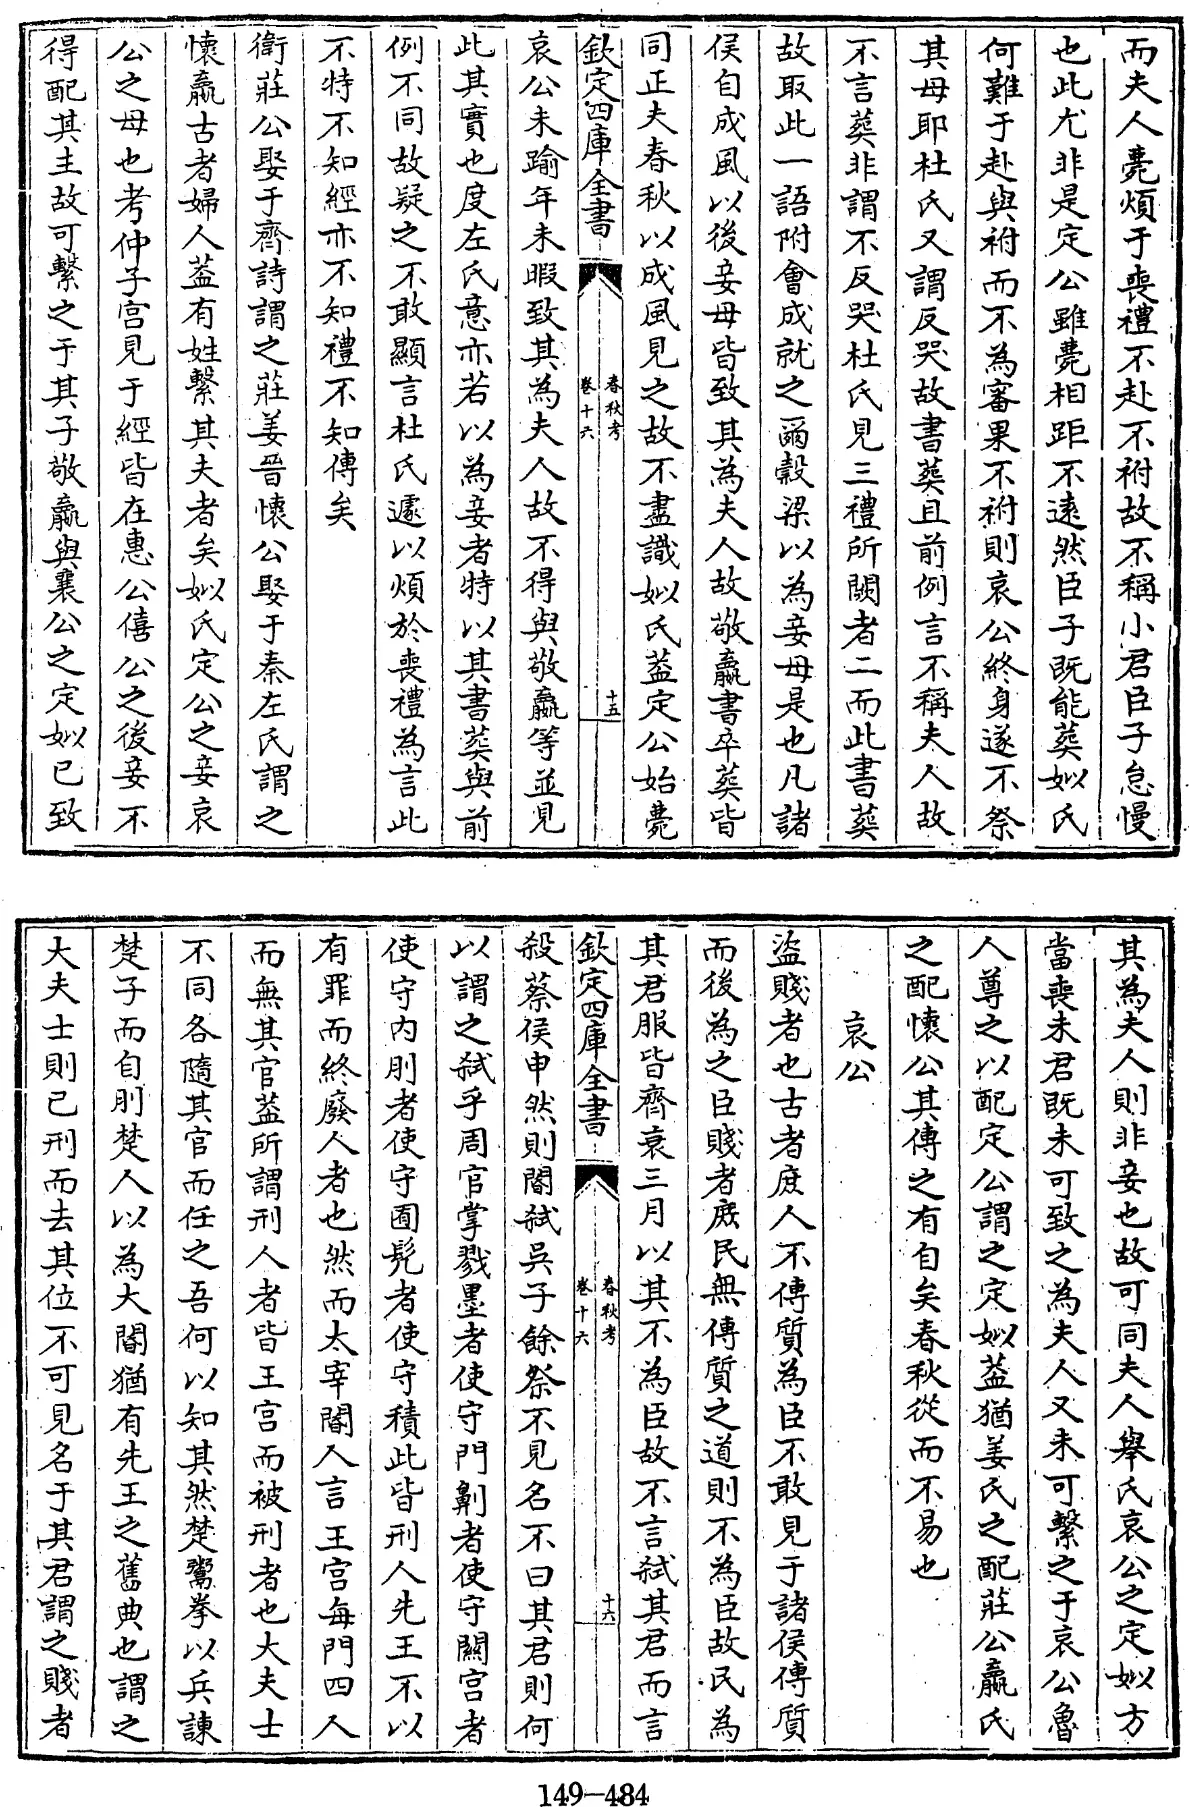 而夫人薨煩于喪禮不赴不祔故不稱小君臣子怠慢
也此尤非是定公雖薨相距不遠然臣子既能葬姒氏
何難于赴與祔而不為審果不祔則哀公終身遂不祭
其母耶杜氏又謂反哭故書葬且前例言不稱夫人故
不言葬非謂不反哭杜氏見三禮所闕者二而此書葬
故取此一語附會成就之爾穀梁以為妾母是也凡諸
侯自成風以後妾母皆致其為夫人故敬嬴書卒葬皆
同正夫春秋以成風見之故不盡識姒氏葢定公始薨
欽定四庫全書
春秋考
卷十六
十五
哀公未踰年未暇致其為夫人故不得與敬嬴等並見
此其實也度左氏意亦若以為妾者特以其書葬與前
例不同故疑之不敢顯言杜氏遽以煩於喪禮為言此
不特不知經亦不知禮不知傳矣
衛莊公娶于齊詩謂之莊姜晉懷公娶于秦左氏謂之
懷嬴古者婦人葢有姓繫其夫者矣姒氏定公之妾哀
公之母也考仲子宫見于經皆在惠公僖公之後妾不
得配其主故可繫之于其子敬嬴與襄公之定姒已致
其為夫人則非妾也故可同夫人舉氏哀公之定姒方
當喪未君既未可致之為夫人又未可繫之于哀公魯
人尊之以配定公謂之定姒葢猶姜氏之配莊公嬴氏
之配懷公其傳之有自矣春秋從而不易也
哀公
盜賤者也古者庶人不傳質為臣不敢見于諸侯傳質
而後為之臣賤者庶民無傳質之道則不為臣故民為
其君服皆齊衰三月以其不為臣故不言弑其君而言
欽定四庫全書
春秋考
卷十六
十六
殺蔡侯申然則閽弑吳子餘祭不見名不曰其君則何
以謂之弑乎周官掌戮墨者使守門劓者使守關宫者
使守内刖者使守囿髡者使守積此皆刑人先王不以
有罪而終廢人者也然而太宰閽人言王宫每門四人
而無其官葢所謂刑人者皆王宫而被刑者也大夫士
不同各隨其官而任之吾何以知其然楚鬻拳以兵諫
楚子而自刖楚人以為大閽猶有先王之舊典也謂之
大夫士則已刑而去其位不可見名于其君謂之賤者
149-484